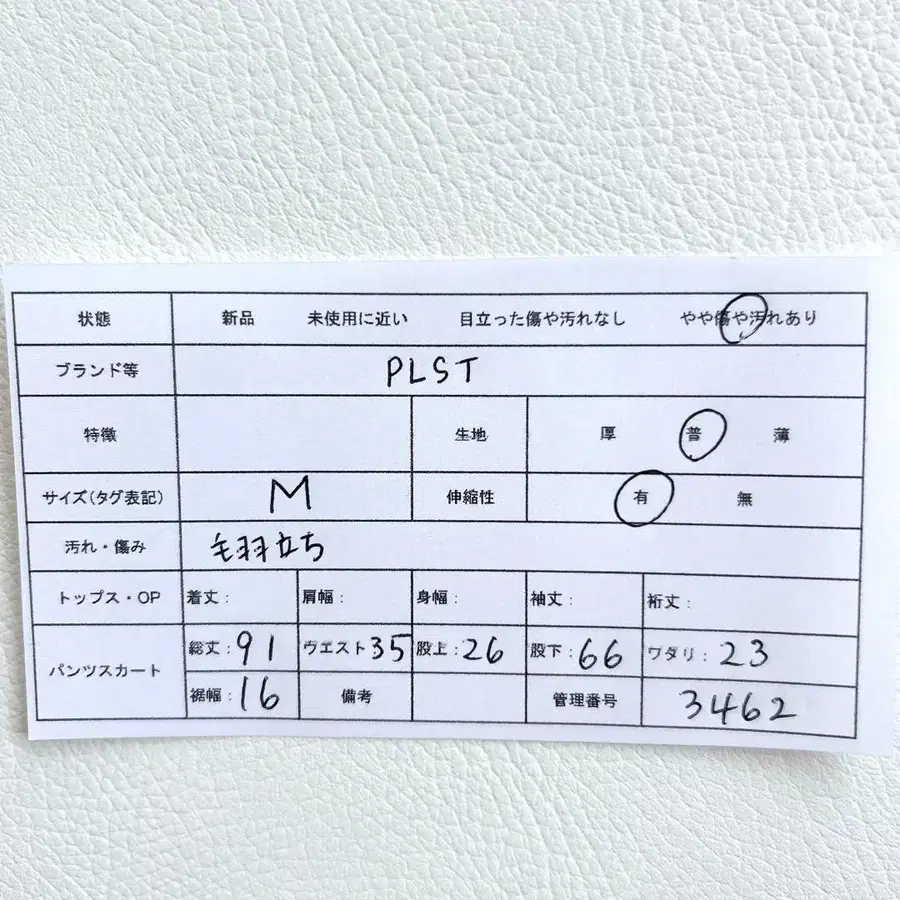 状態 新品 未使用に近い 目立った傷や汚れなし やや傷や汚れあり
ブランド等 PLST
特徴 生地 厚 普 薄
サイズ(タグ表記) M 伸縮性 有 無
汚れ・傷み 毛羽立ち
トップス・OP 着丈: 肩幅: 身幅: 袖丈: 裄丈:
パンツスカート 総丈:91 ウエスト35 股上:26 股下:66 ワダリ:23
裾幅:16 備考 管理番号 3462